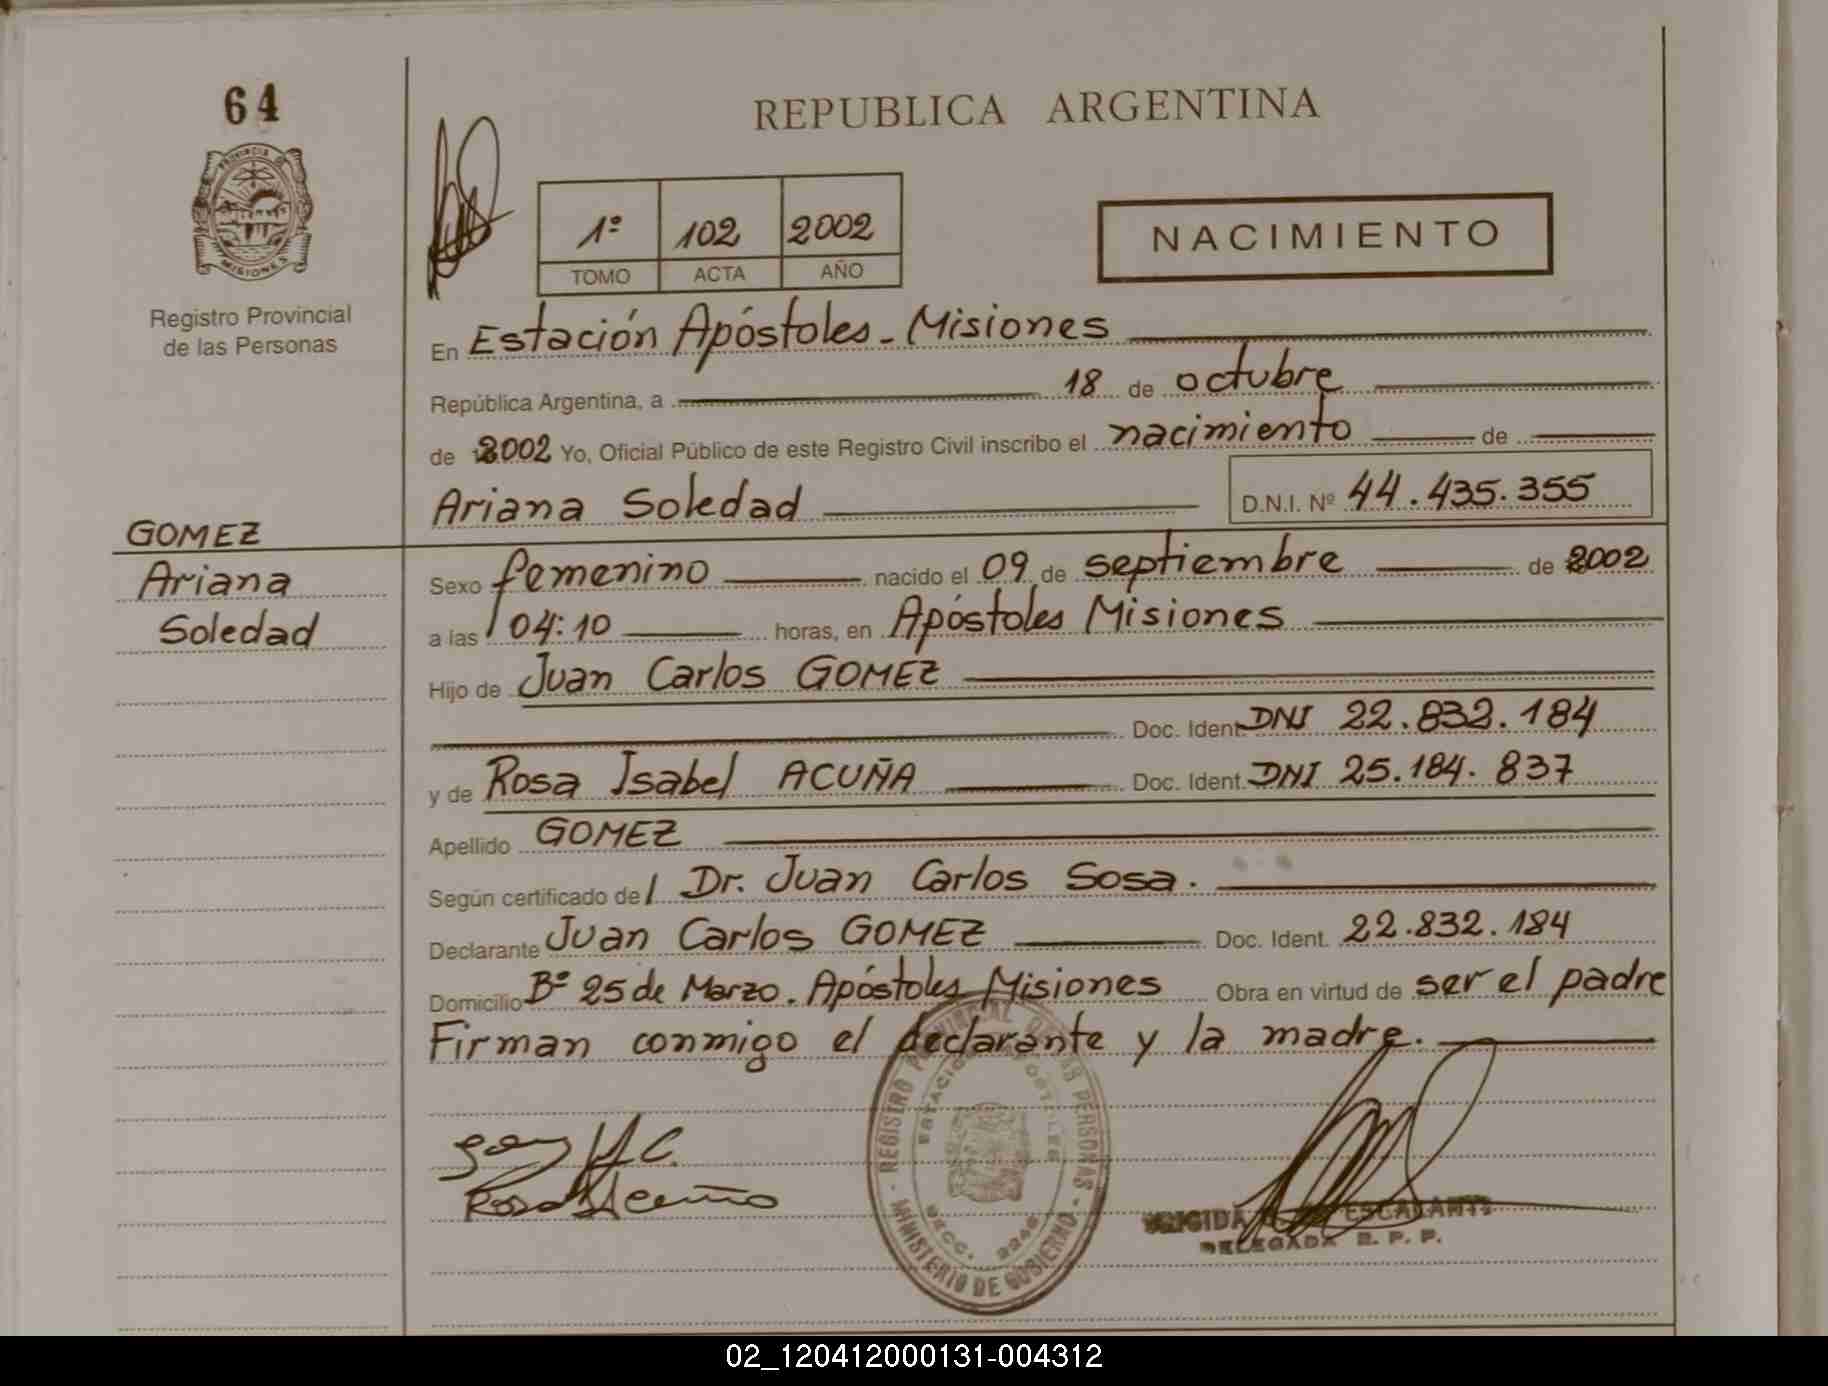 64
REPUBLICA ARGENTINA
PROVINCIA DE MISIONES
1º 102 2002
TOMO ACTA AÑO
NACIMIENTO
Registro Provincial
de las Personas
En Estación Apóstoles - Misiones
República Argentina, a 18 de octubre
de 2002 Yo, Oficial Público de este Registro Civil inscribo el nacimiento de
Ariana Soledad D.N.I. Nº 44.435.355
GOMEZ
Ariana
Soledad
Sexo femenino nacido el 09 de septiembre de 2002
a las 04:10 horas, en Apóstoles Misiones
Hijo de Juan Carlos GOMEZ
Doc. Ident. DNI 22.832.184
y de Rosa Isabel ACUÑA Doc. Ident. DNI 25.184.837
Apellido GOMEZ
Según certificado del Dr. Juan Carlos Sosa.
Declarante Juan Carlos GOMEZ Doc. Ident. 22.832.184
Domicilio Bº 25 de Marzo. Apóstoles Misiones Obra en virtud de ser el padre
Firman conmigo el declarante y la madre.
REGISTRO PROVINCIAL DE LAS PERSONAS
MINISTERIO DE GOBIERNO
ESTACION APOSTOLES
SECC. 2246
Rosa I Acuña
BRIGIDA ESCALANTE
DELEGADA R. P. P.
02_120412000131-004312